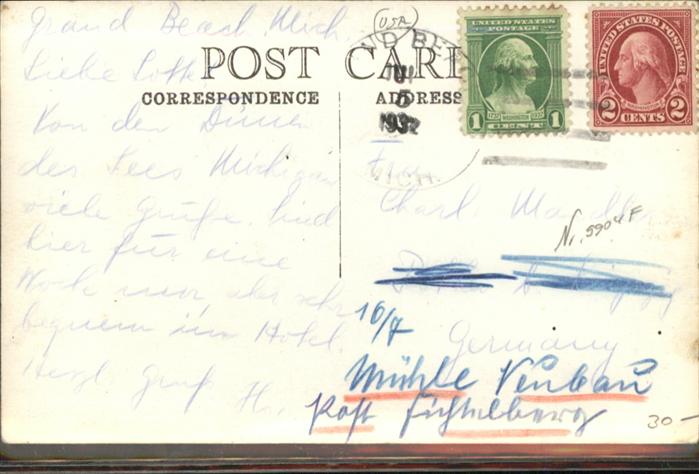 Grand Beach, Mich
(USA)
POST CARD
CORRESPONDENCE
ADDRESS
ND BE
JUL
5
1932
MICH.
UNITED STATES
POSTAGE
1 CENT 1
UNITED STATES POSTAGE
WASHINGTON
2 CENTS 2
Liebe Lotte
Von den Dünen
des Sees Michigan
viele Grüße. Sind
hier für eine
Woche nur, aber sehr
bequem im Hotel.
Herzl. Gruß H.
Frau
Charl.
Nr. 5904 F
16/7
Germany
Mühle Neubau
Post Fichtelberg
30-